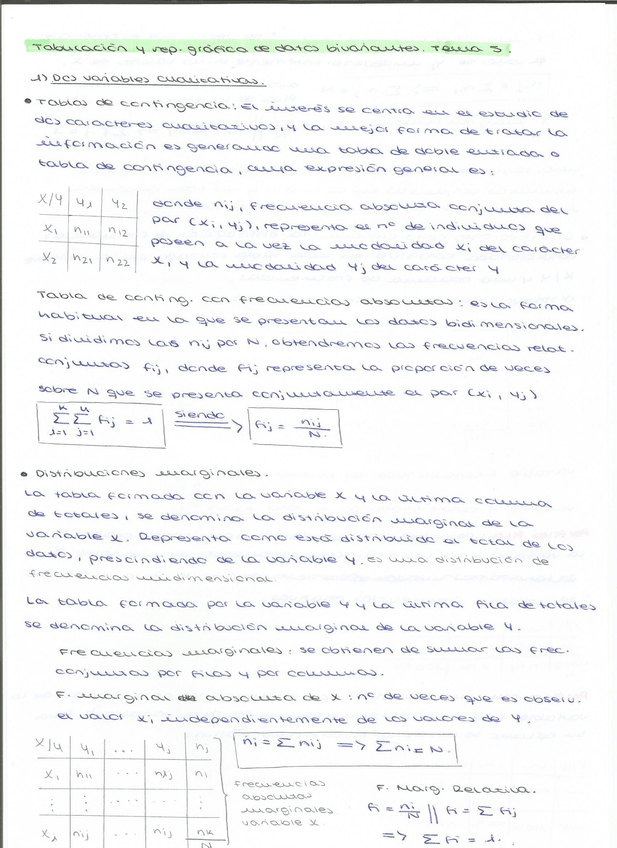 Tabulación y rep. gráfica de datos bivariantes. Tema 3.
1) Dos variables cualitativas.
• Tablas de contingencia: El interés se centra en el estudio de
dos caracteres cualitativos, y la mejor forma de tratar la
información es generando una tabla de doble entrada o
tabla de contingencia, cuya expresión general es:
X/Y | y1 | y2
x1 | n11 | n12
x2 | n21 | n22
donde nij, frecuencia absoluta conjunta del
par (xi, yj), representa el nº de individuos que
poseen a la vez la modalidad xi del carácter
x, y la modalidad yj del carácter y
Tabla de conting. con frecuencias absolutas: es la forma
habitual en la que se presentan los datos bidimensionales.
Si dividimos las nij por N, obtendremos las frecuencias relat.
conjuntas fij, donde fij representa la proporción de veces
sobre N que se presenta conjuntamente el par (xi, yj)
∑ i=1 ∑ j=1 fij = 1 siendo => fij = nij / N
• Distribuciones marginales.
La tabla formada con la variable X y la última columna
de totales, se denomina la distribución marginal de la
variable X. Representa como está distribuido el total de los
datos, prescindiendo de la variable Y. Es una distribución de
frecuencias unidimensional.
La tabla formada por la variable Y y la última fila de totales
se denomina la distribución marginal de la variable Y.
Frecuencias marginales: se obtienen de sumar las frec.
conjuntas por filas y por columnas.
F. marginal absoluta de X: nº de veces que es observ.
el valor xi independientemente de los valores de Y.
X/Y | y1 | ... | yj | nj
x1 | n11 | ... | n1j | n1
⋮ | ⋮ | ... | ⋮ | ⋮
x1 | nij | ... | nij | nk / N
ni = ∑ nij => ∑ ni = N.
Frecuencias
absolutas
marginales
variable X.
F. Marg. Relativa.
fi = ni / N || fi = ∑ fij
=> ∑ fi = 1.